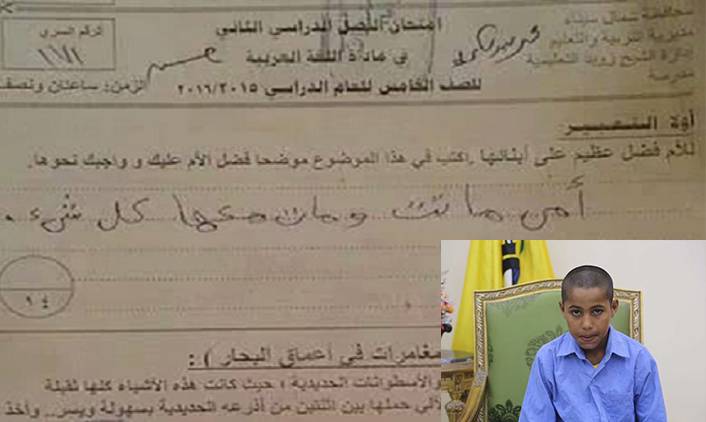 محافظة شمال سيناء
مديرية التربية والتعليم
إدارة الشيخ زويد التعليمية
مدرسة
امتحان الفصل الدراسي الثاني
في مادة اللغة العربية
للصف الخامس للعام الدراسي ٢٠١٦/٢٠١٥
الرقم السري
الزمن: ساعتان ونصف
أولا التعبير
للأم فضل عظيم على أبنائها .اكتب في هذا الموضوع موضحا فضل الأم عليك و واجبك نحوها.
أمى ماتت ومات معها كل شىء.
١٤
مغامرات فى أعماق البحار ) :
والأسطوانات الحديدية ؛ حيث كانت هذه الأشياء كلها ثقيلة
حملها بين اثنتين من أذرعه الحديدية بسهولة ويسر.. وأخذ